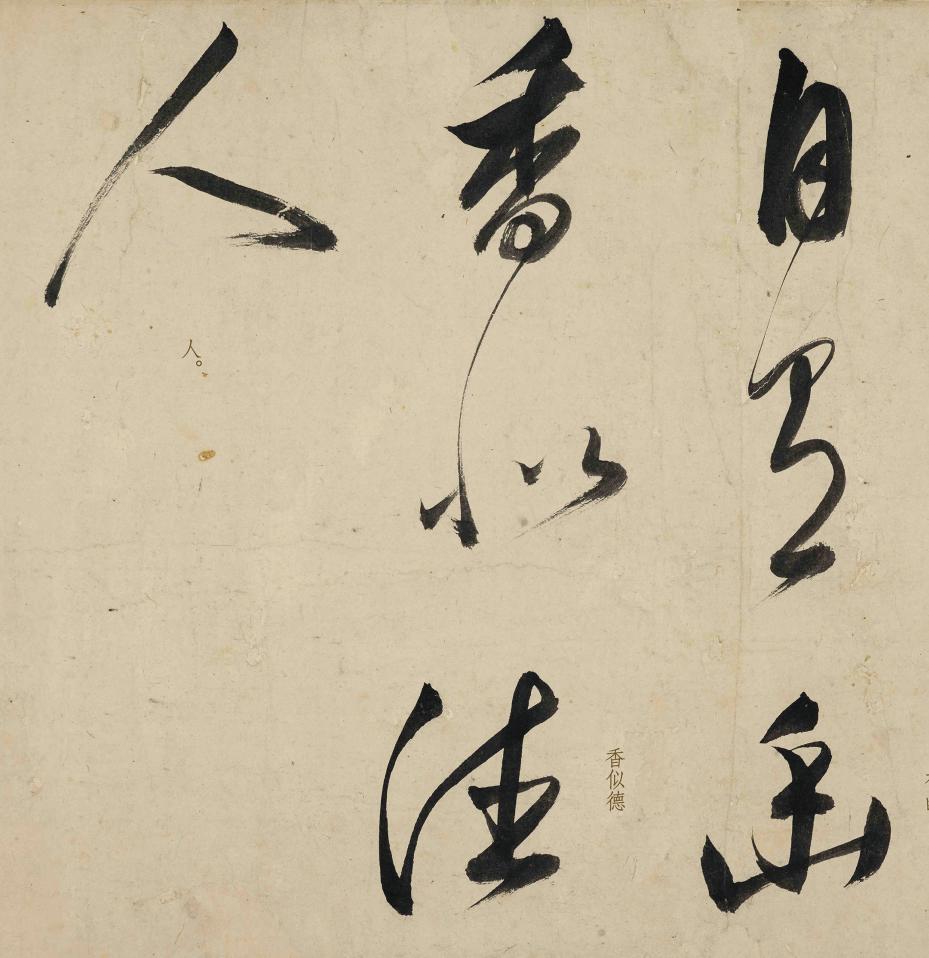 自有幽
香似德
香似德
人
人。